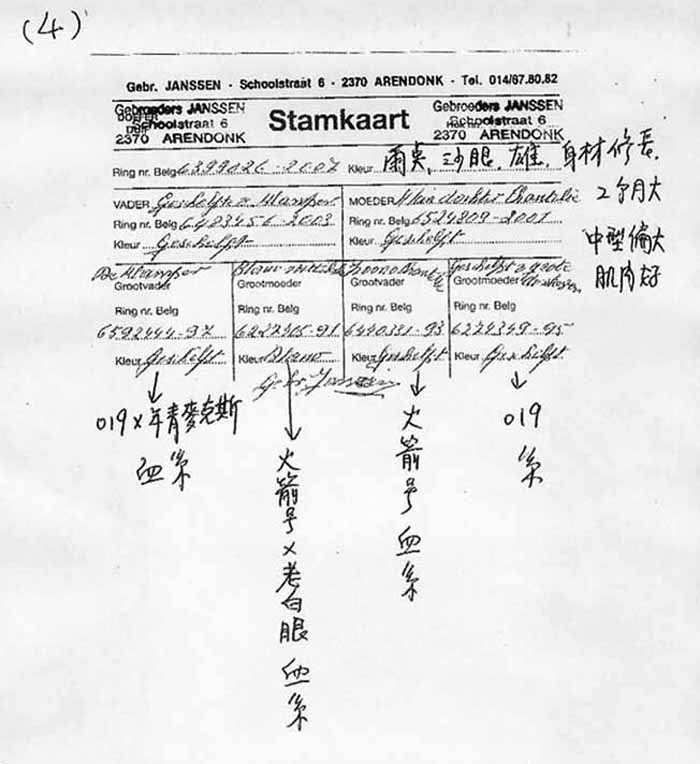 (4)
Gebr. JANSSEN - Schoolstraat 6 - 2370 ARENDONK - Tel. 014/67.80.82
Gebroeders JANSSEN
Schoolstraat 6
2370 ARENDONK
Stamkaart
Gebroeders JANSSEN
Schoolstraat 6
2370 ARENDONK
Ring nr. Belg 6399026-2007 Kleur 雨点, 沙眼, 雄, 身材修長,
2个月大
中型偏大
肌肉好
VADER Geschelpte
Ring nr. Belg 6483456-2003
Kleur Geschelpt
MOEDER
Ring nr. Belg 6524809-2001
Kleur Geschelpt
Grootvader
Ring nr. Belg
6592444-97
Kleur Geschelpt
Grootmoeder
Ring nr. Belg
6222405-91
Kleur Blauw
Grootvader
Ring nr. Belg
6440331-93
Kleur Geschelpt
Grootmoeder
Ring nr. Belg
6274349-95
Kleur Geschelpt
Gebr. Janssen
019×年青麥克斯
血系
火箭号×老白眼血系
火箭号血系
019
系